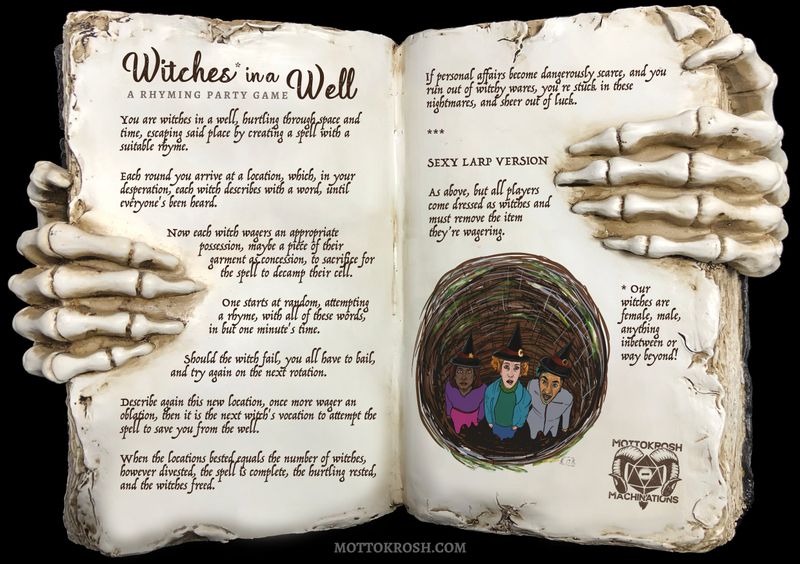 Witches* in a Well
A RHYMING PARTY GAME
You are witches in a well, hurtling through space and
time, escaping said place by creating a spell with a
suitable rhyme.
Each round you arrive at a location, which, in your
desperation, each witch describes with a word, until
everyone's been heard.
Now each witch wagers an appropriate
possession, maybe a piece of their
garment as concession, to sacrifice for
the spell to decamp their cell.
One starts at random, attempting
a rhyme, with all of these words,
in but one minute's time.
Should the witch fail, you all have to bail,
and try again on the next rotation.
Describe again this new location, once more wager an
oblation, then it is the next witch's vocation to attempt the
spell to save you from the well.
When the locations bested equals the number of witches,
however divested, the spell is complete, the hurtling rested,
and the witches freed.
If personal affairs become dangerously scarce, and you
run out of witchy wares, you're stuck in these
nightmares, and sheer out of luck.
***
SEXY LARP VERSION
As above, but all players
come dressed as witches and
must remove the item
they're wagering.
* Our
witches are
female, male,
anything
inbetween or
way beyond!
MOTTOKROSH
MACHINATIONS
MOTTOKROSH.COM